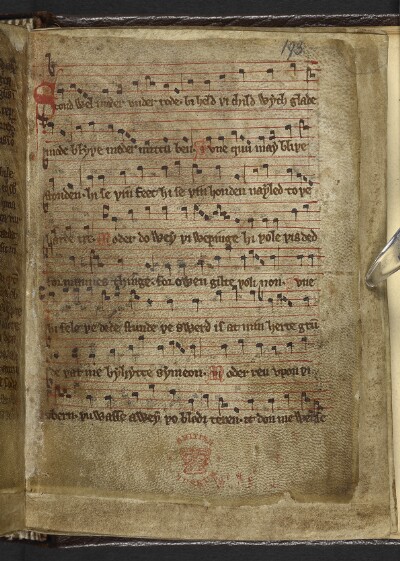 193
Stond wel moder vnder rode. bi held þi child wyth glade
mode blyþe moder mittu ben. Svne qui may bliþe
stonden. hi se þin feet hi se þin honden nayled to þe
harde tre. Moder do wey þi wepinge hi þole þis ded
for mannes thinge. for owen gilte þoli non. Svne
hi fele þe dede stunde þe swerd is at min herte grun
de þat me byhytte symeon. Moder reu vpon þi
bern. þu wasse awey þo blodi teren. it don me werse
BRITISH
MUSEUM